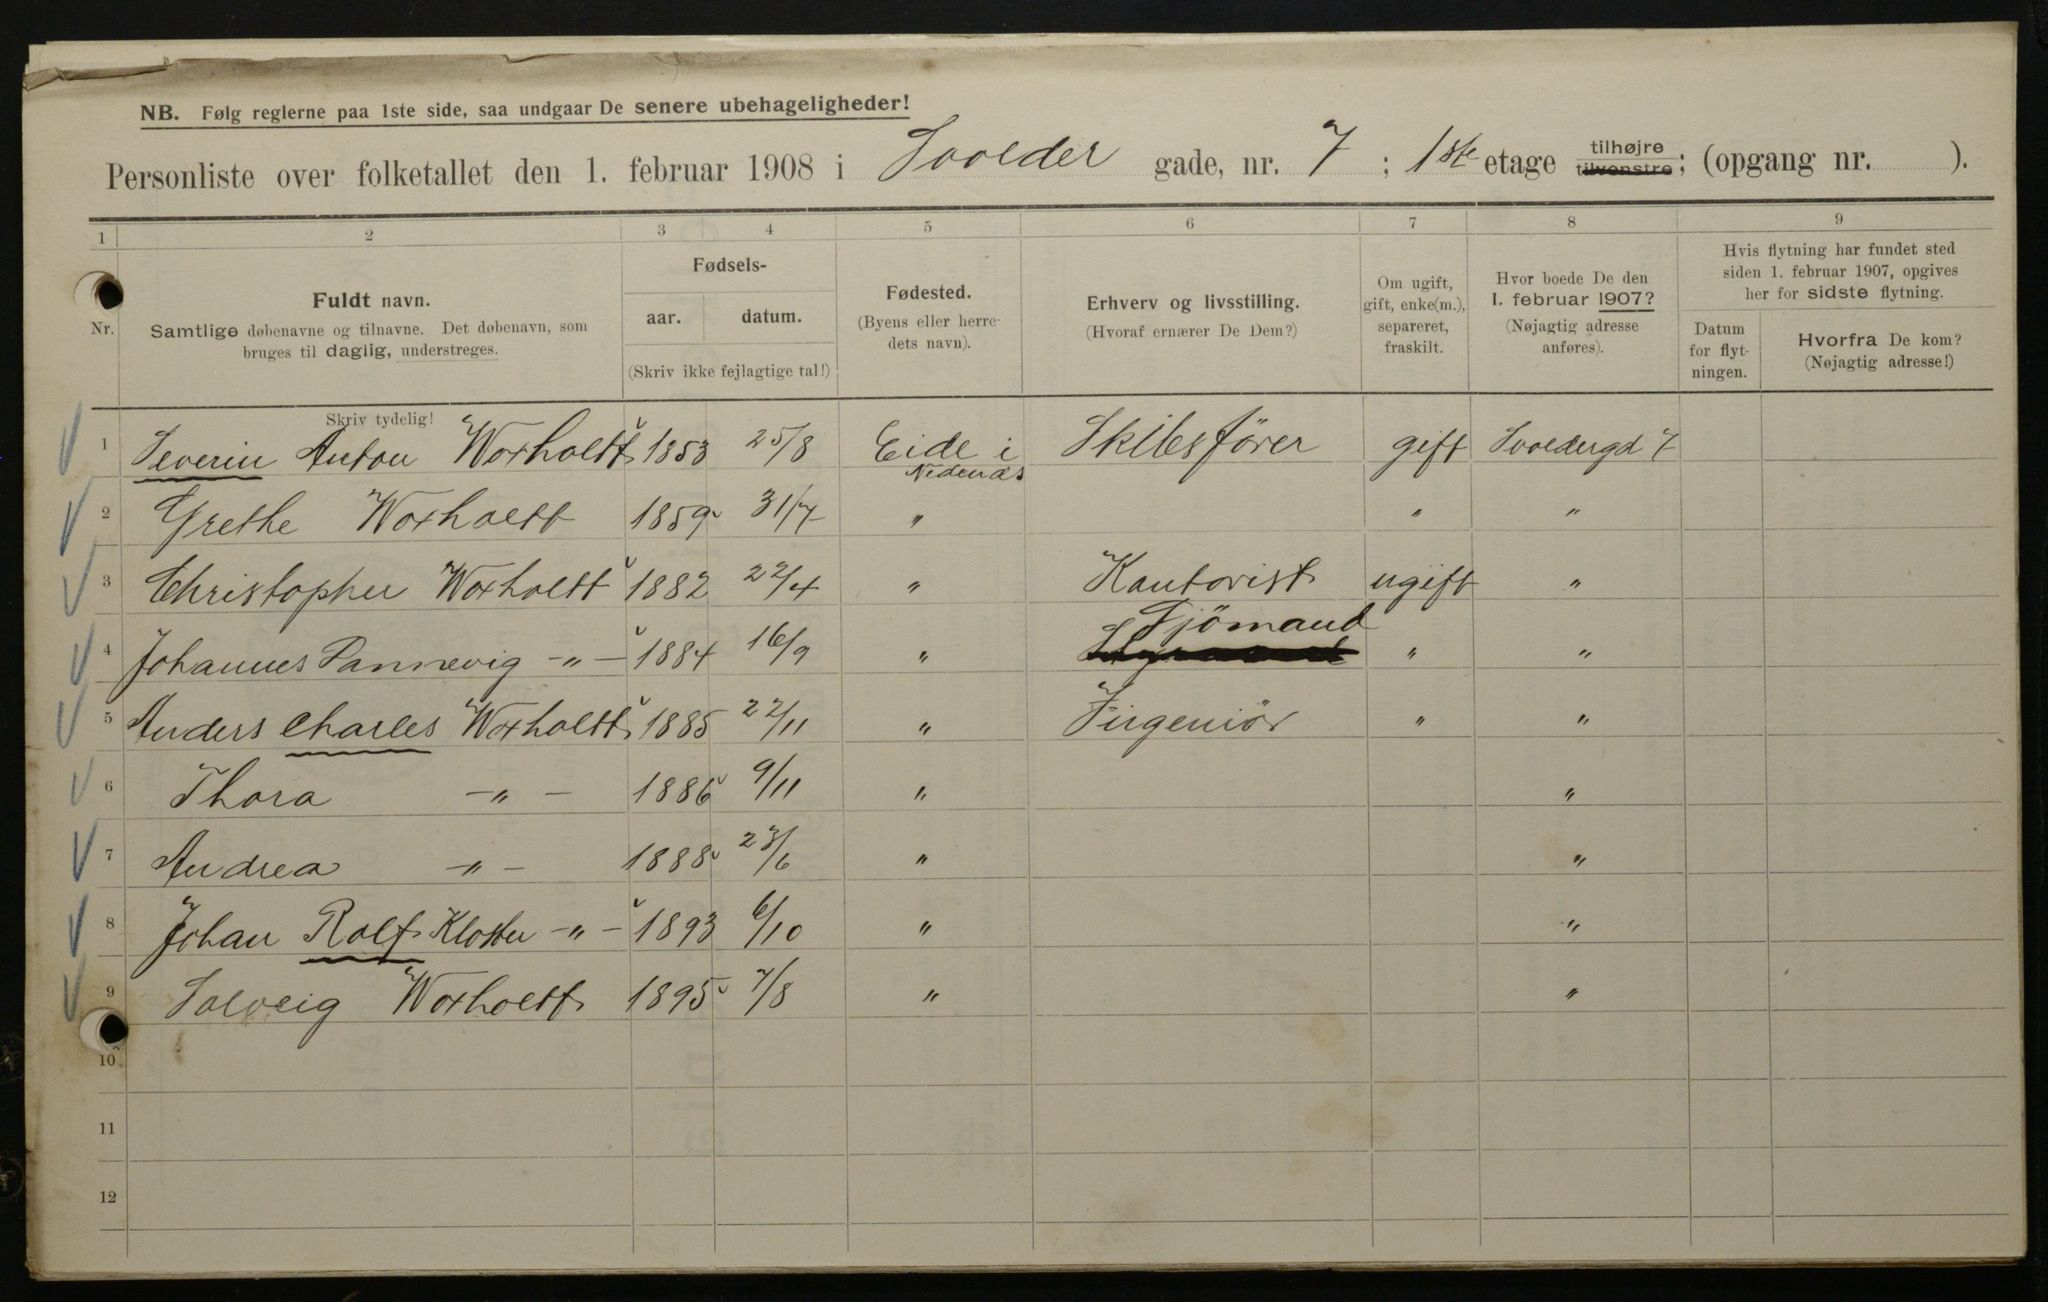 NB. Følg reglerne paa 1ste side, saa undgaar De senere ubehageligheder!
Personliste over folketallet den 1. februar 1908 i Svolder gade, nr. 7 ; 1ste etage tilhøjre tilvenstre; (opgang nr. ).
1 2 3 4 5 6 7 8 9
Nr.
Fuldt navn.
Samtlige døbenavne og tilnavne. Det døbenavn, som
bruges til daglig, understreges.
Skriv tydelig!
Fødsels-
aar. datum.
(Skriv ikke fejlagtige tal!)
Fødested.
(Byens eller herre-
dets navn).
Erhverv og livsstilling.
(Hvoraf ernærer De Dem?)
Om ugift,
gift, enke(m.),
separeret,
fraskilt.
Hvor boede De den
1. februar 1907?
(Nøjagtig adresse
anføres).
Hvis flytning har fundet sted
siden 1. februar 1907, opgives
her for sidste flytning.
Datum
for flyt-
ningen.
Hvorfra De kom?
(Nøjagtig adresse!)
1 Severin Anton Woxholtt 1853 25/8 Eide i Nedenæs Skibsfører gift Svoldergd 7
2 Grethe Woxholtt 1859 31/7 " " "
3 Christopher Woxholtt 1882 22/4 " Kontorist ugift "
4 Johannes Pannevig -"- 1884 16/9 " Sjömand " "
5 Anders Charles Woxholtt 1885 22/11 " Ingeniör " "
6 Thora -"- 1886 9/11 " "
7 Andrea -"- 1888 23/6 " "
8 Johan Rolf Kloster -"- 1893 6/10 " "
9 Solveig Woxholtt 1895 7/8 " "
10
11
12